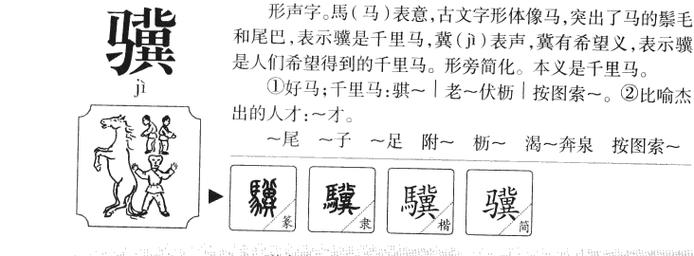 骥
jì
形声字。馬(马)表意,古文字形体像马,突出了马的鬃毛
和尾巴,表示骥是千里马,冀(jì)表声,冀有希望义,表示骥
是人们希望得到的千里马。形旁简化。本义是千里马。
①好马;千里马:骐~|老~伏枥|按图索~。②比喻杰
出的人才:~才。
~尾 ~子 ~足 附~ 枥~ 渴~奔泉 按图索~
驥 篆 驥 隶 驥 楷 骥 简